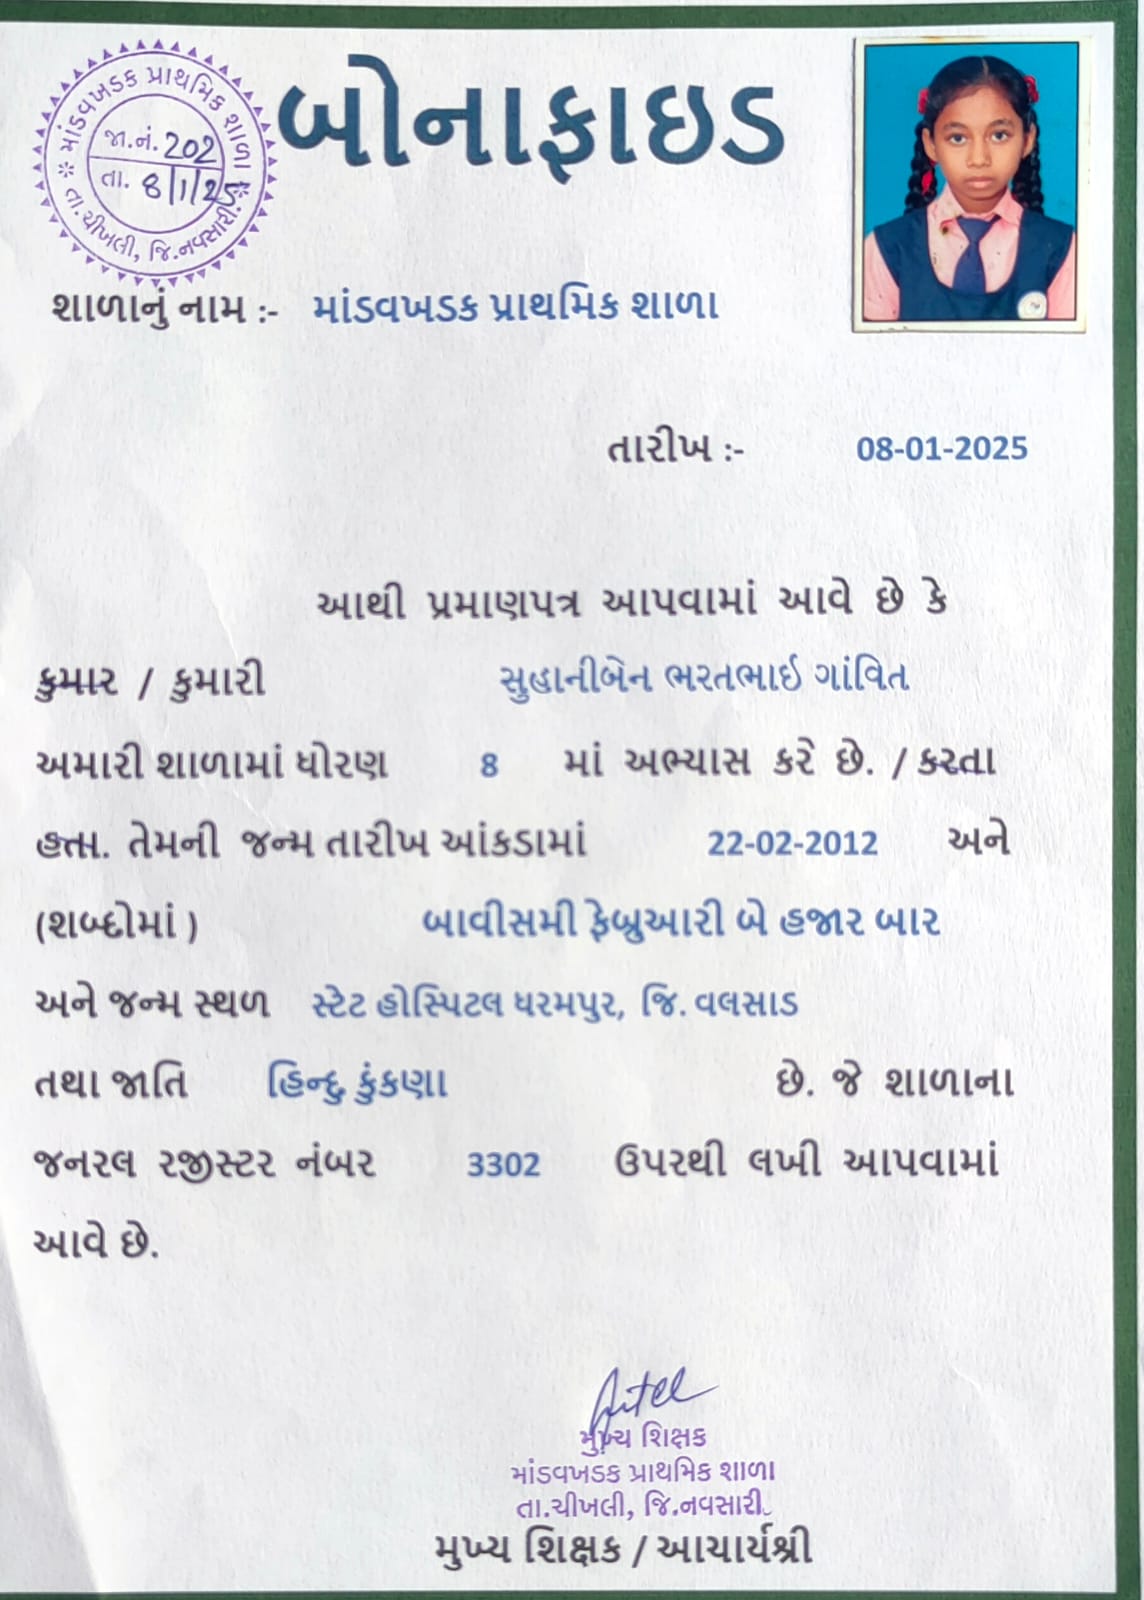 માંડવખડક પ્રાથમિક શાળા
જા.નં. 202
તા. 8/1/25
તા.ચીખલી, જિ.નવસારી.
બોનાફાઇડ
શાળાનું નામ :- માંડવખડક પ્રાથમિક શાળા
તારીખ :- 08-01-2025
આથી પ્રમાણપત્ર આપવામાં આવે છે કે
કુમાર / કુમારી સુહાનીબેન ભરતભાઈ ગાંવિત
અમારી શાળામાં ધોરણ 8 માં અભ્યાસ કરે છે. / કરતા
હતા. તેમની જન્મ તારીખ આંકડામાં 22-02-2012 અને
(શબ્દોમાં ) બાવીસમી ફેબ્રુઆરી બે હજાર બાર
અને જન્મ સ્થળ સ્ટેટ હોસ્પિટલ ધરમપુર, જિ. વલસાડ
તથા જાતિ હિન્દુ કુંકણા છે. જે શાળાના
જનરલ રજીસ્ટર નંબર 3302 ઉપરથી લખી આપવામાં
આવે છે.
મુખ્ય શિક્ષક
માંડવખડક પ્રાથમિક શાળા
તા.ચીખલી, જિ.નવસારી.
મુખ્ય શિક્ષક / આચાર્યશ્રી